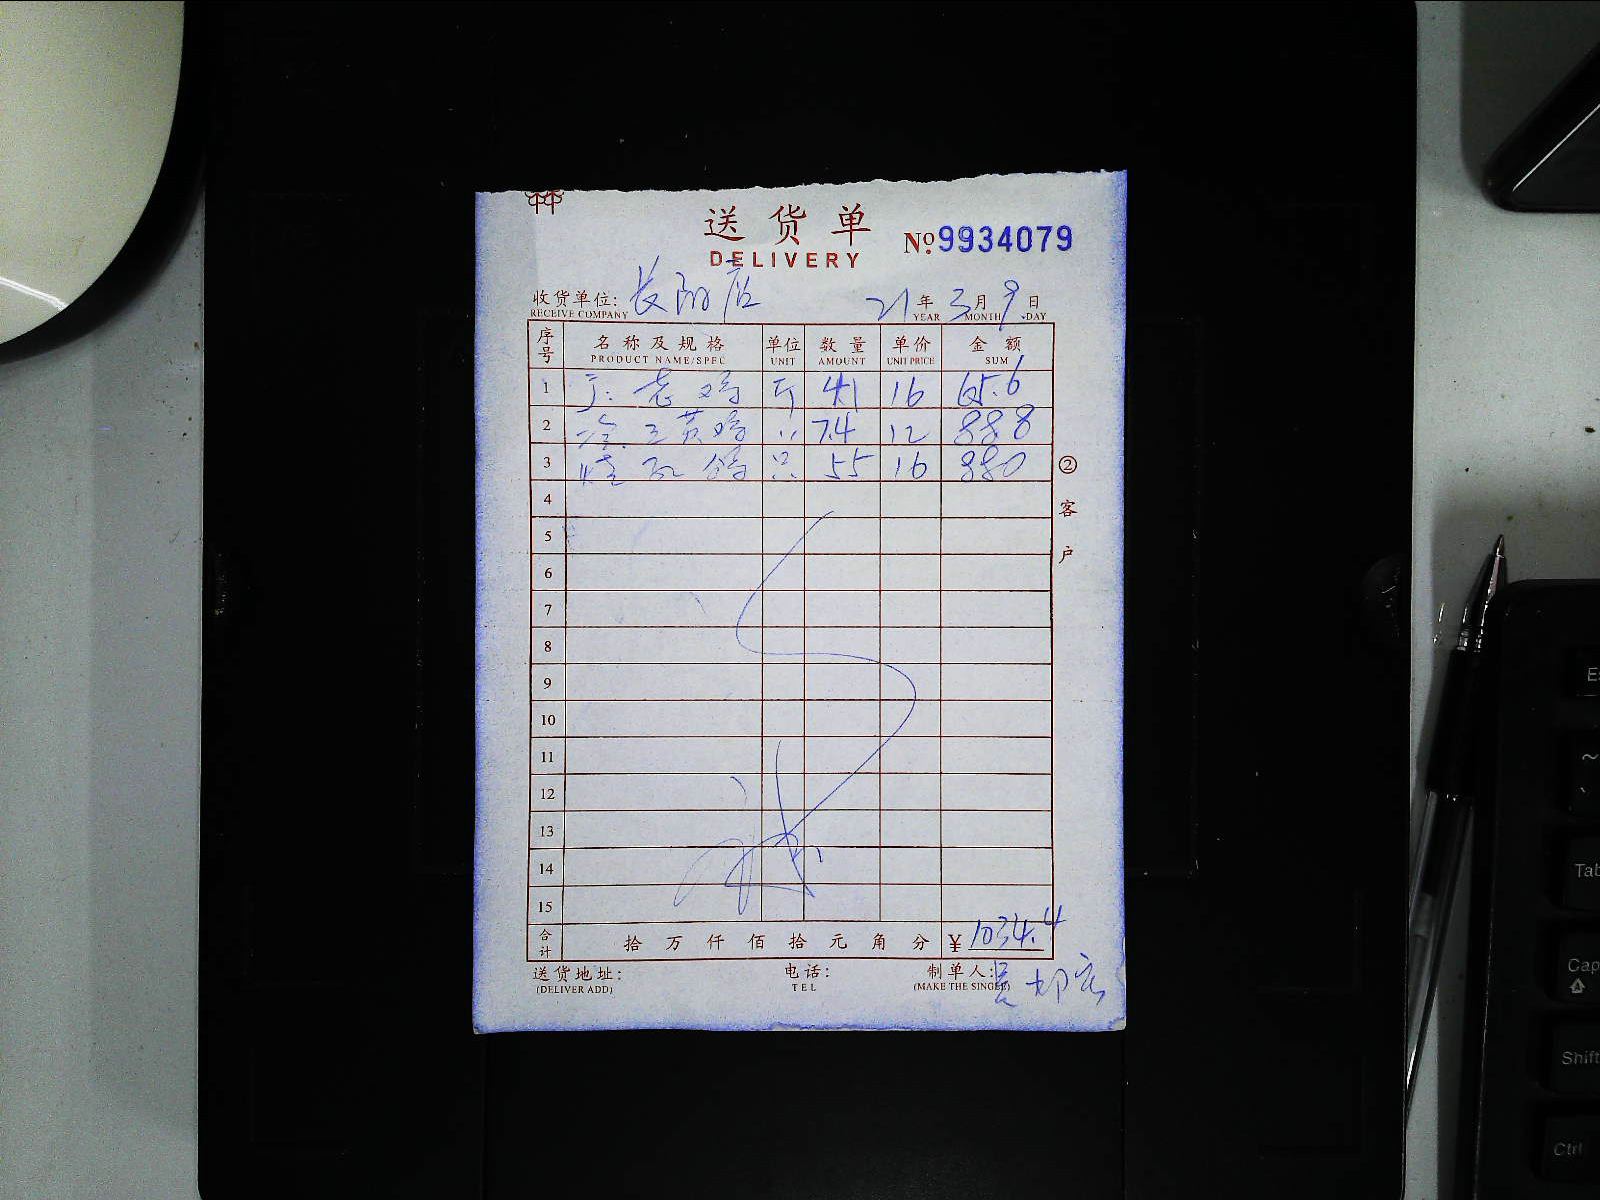 送货单
DELIVERY
No.9934079
收货单位: 长阳店 21年 3月 9日
RECEIVE COMPANY YEAR MONTH DAY
序号 名称及规格 单位 数量 单价 金额
PRODUCT NAME/SPEC UNIT AMOUNT UNIT PRICE SUM
1 老鸡 斤 4.1 16 65.6
2 三黄鸡 7.4 12 88.8
3 鸽 只 55 16 880
4
5
6
7
8
9
10
11
12
13
14
15
②客户
合计 拾万仟佰拾元角分 ¥1034.4
送货地址: 电话: 制单人:
(DELIVER ADD) TEL (MAKE THE SINGLE)
Tab
Shift
Ctrl